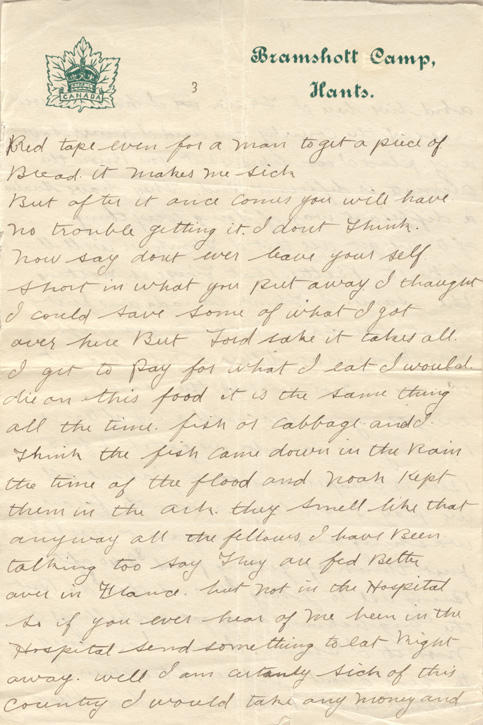 CANADA
3
Bramshott Camp,
Hants.
Red tape even for a man to get a piece of
Bread. it makes me sick
But after it once comes you will have
no trouble getting it. I dont think.
now say dont ever leave your self
short in what you put away I thaught
I could save some of what I got
over here But Lord sake it takes all.
I got to pay for what I eat I would
die on this food it is the same thing
all the time. fish or cabbage. and I
think the fish came down in the Rain
the time of the flood and noah kept
them in the ark. they smell like that
anyway all the fellows I have Been
talking too say They are fed Better
over in France. but not in the Hospital
so if you ever hear of me been in the
Hospital send something to eat Right
away. well I am certanly sick of this
country I would take any money and